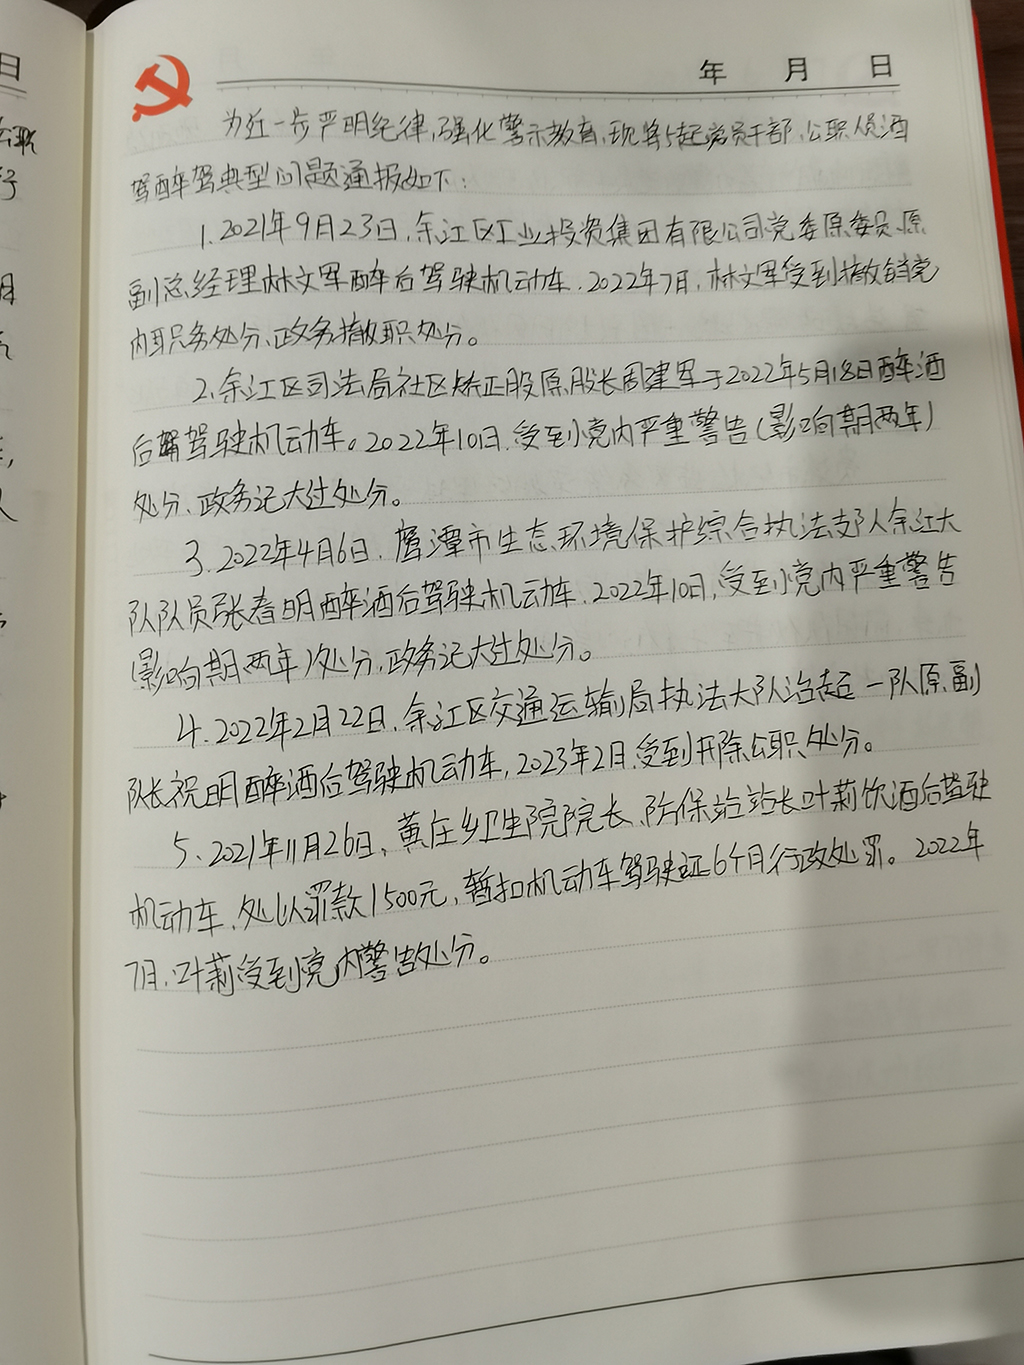 日
年 月 日
为近一步严明纪律,强化警示教育,现将5起党员干部、公职人员酒
驾醉驾典型问题通报如下:
1.2021年9月23日,余江区工业投资集团有限公司党委原委员、原
副总经理林文军醉后驾驶机动车.2022年7月,林文军受到撤销党
内职务处分、政务撤职处分。
2.余江区司法局社区矫正股原股长周建军于2022年5月18日醉酒
后驾驶机动车。2022年10月,受到党内严重警告(影响期两年)
处分、政务记大过处分。
3.2022年4月6日,鹰潭市生态环境保护综合执法支队余江大
队队员张春明醉酒后驾驶机动车.2022年10月,受到党内严重警告
(影响期两年)处分,政务记大过处分。
4.2022年2月22日,余江区交通运输局执法大队治超一队原副
队长祝明醉酒后驾驶机动车,2023年2月,受到开除公职处分。
5、2021年11月26日,黄庄乡卫生院院长、防保站站长叶莉饮酒后驾驶
机动车,处以罚款1500元,暂扣机动车驾驶证6个月行政处罚。2022年
7月,叶莉受到党内警告处分。